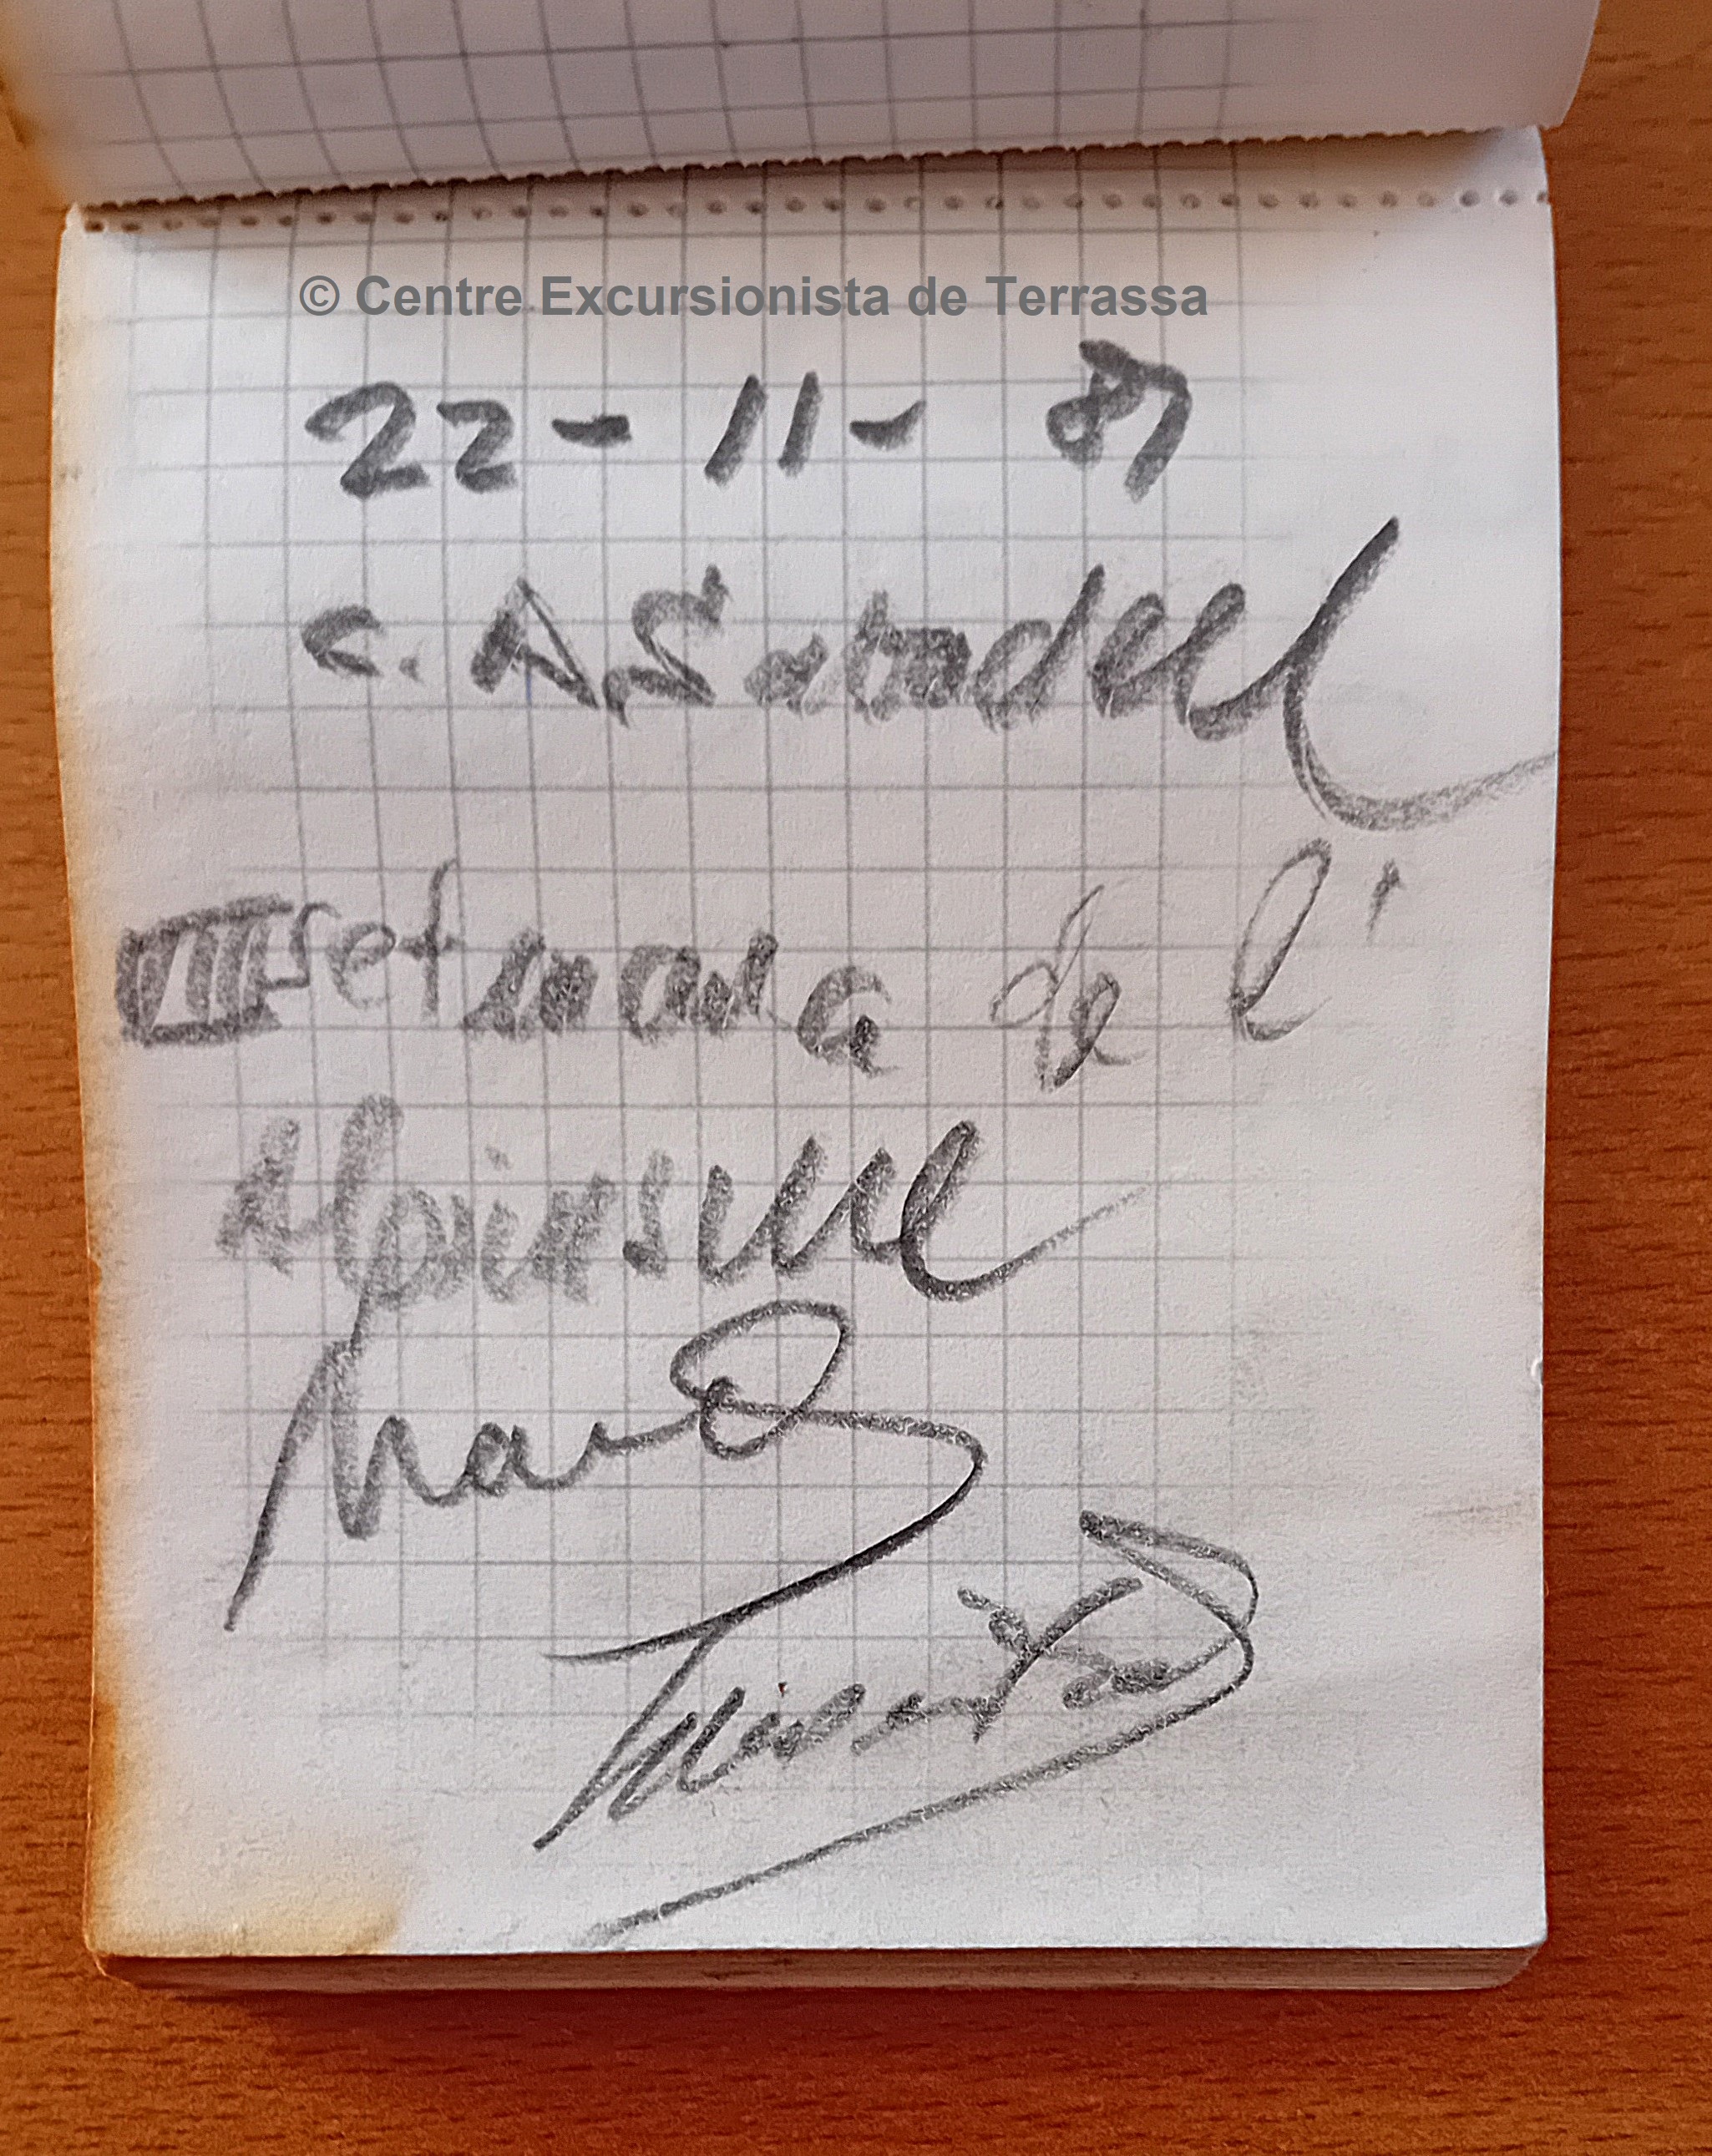 © Centre Excursionista de Terrassa
22 - 11 - 87
C. A. Sabadell
III Setmana de l'
Alpinisme